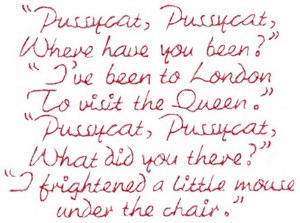 "Pussycat, Pussycat,
Where have you been?"
"I've been to London
To visit the Queen."
"Pussycat, Pussycat,
What did you there?"
"I frightened a little mouse
under the chair."